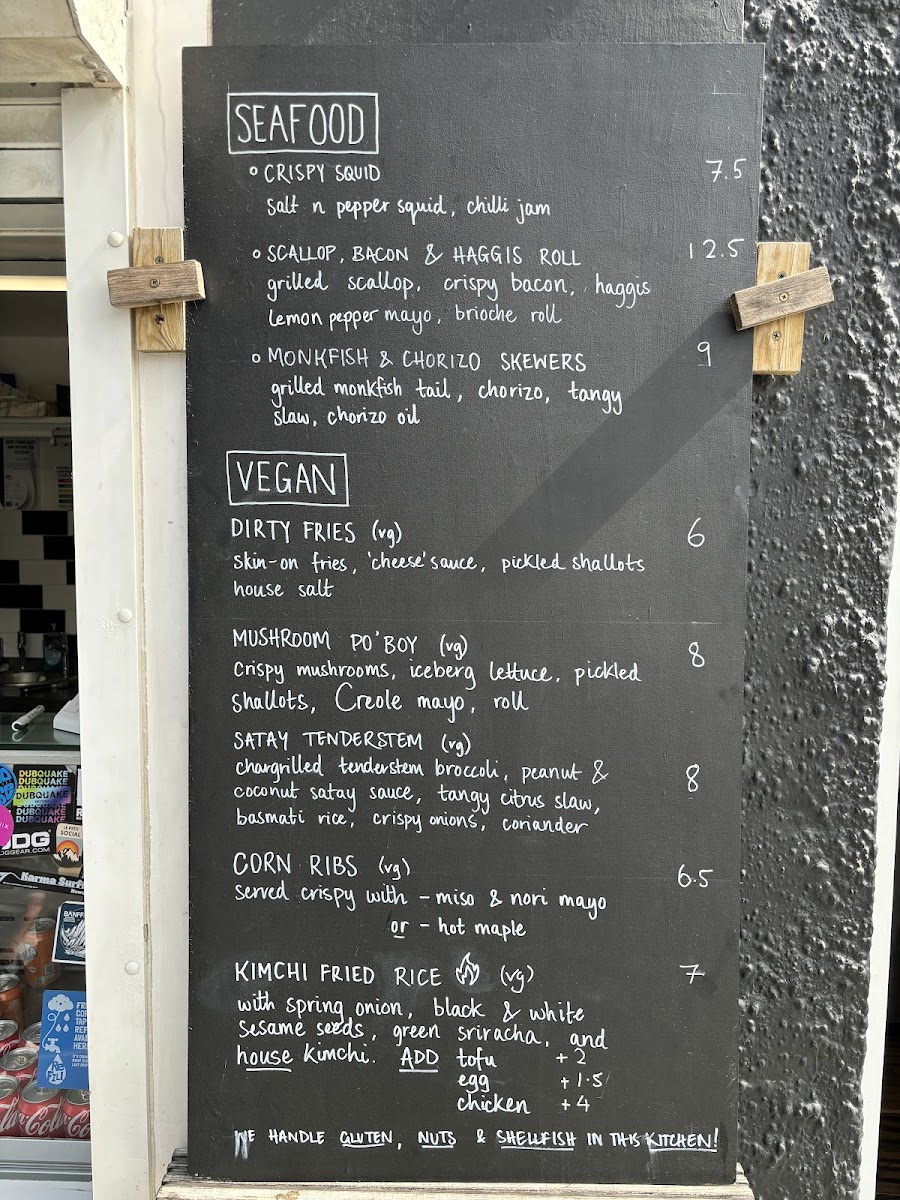 SEAFOOD
CRISPY SQUID 7.5
salt n pepper squid, chilli jam
SCALLOP, BACON & HAGGIS ROLL 12.5
grilled scallop, crispy bacon, haggis
lemon pepper mayo, brioche roll
MONKFISH & CHORIZO SKEWERS 9
grilled monkfish tail, chorizo, tangy
slaw, chorizo oil
VEGAN
DIRTY FRIES (vg) 6
skin-on fries, 'cheese' sauce, pickled shallots
house salt
MUSHROOM PO'BOY (vg) 8
crispy mushrooms, iceberg lettuce, pickled
shallots, Creole mayo, roll
SATAY TENDERSTEM (vg)
chargrilled tenderstem broccoli, peanut & 8
coconut satay sauce, tangy citrus slaw,
basmati rice, crispy onions, coriander
CORN RIBS (vg) 6.5
served crispy with - miso & nori mayo
or - hot maple
KIMCHI FRIED RICE (vg) 7
with spring onion, black & white
sesame seeds, green sriracha, and
house kimchi. ADD tofu +2
egg +1.5
chicken +4
WE HANDLE GLUTEN, NUTS & SHELLFISH IN THIS KITCHEN!
DUBQUAKE
DUBQUAKE
DUBQUAKE
DUBQUAKE
DUBQUAKE
LE PETIT
SOCIAL
Karma Surf
BANFF